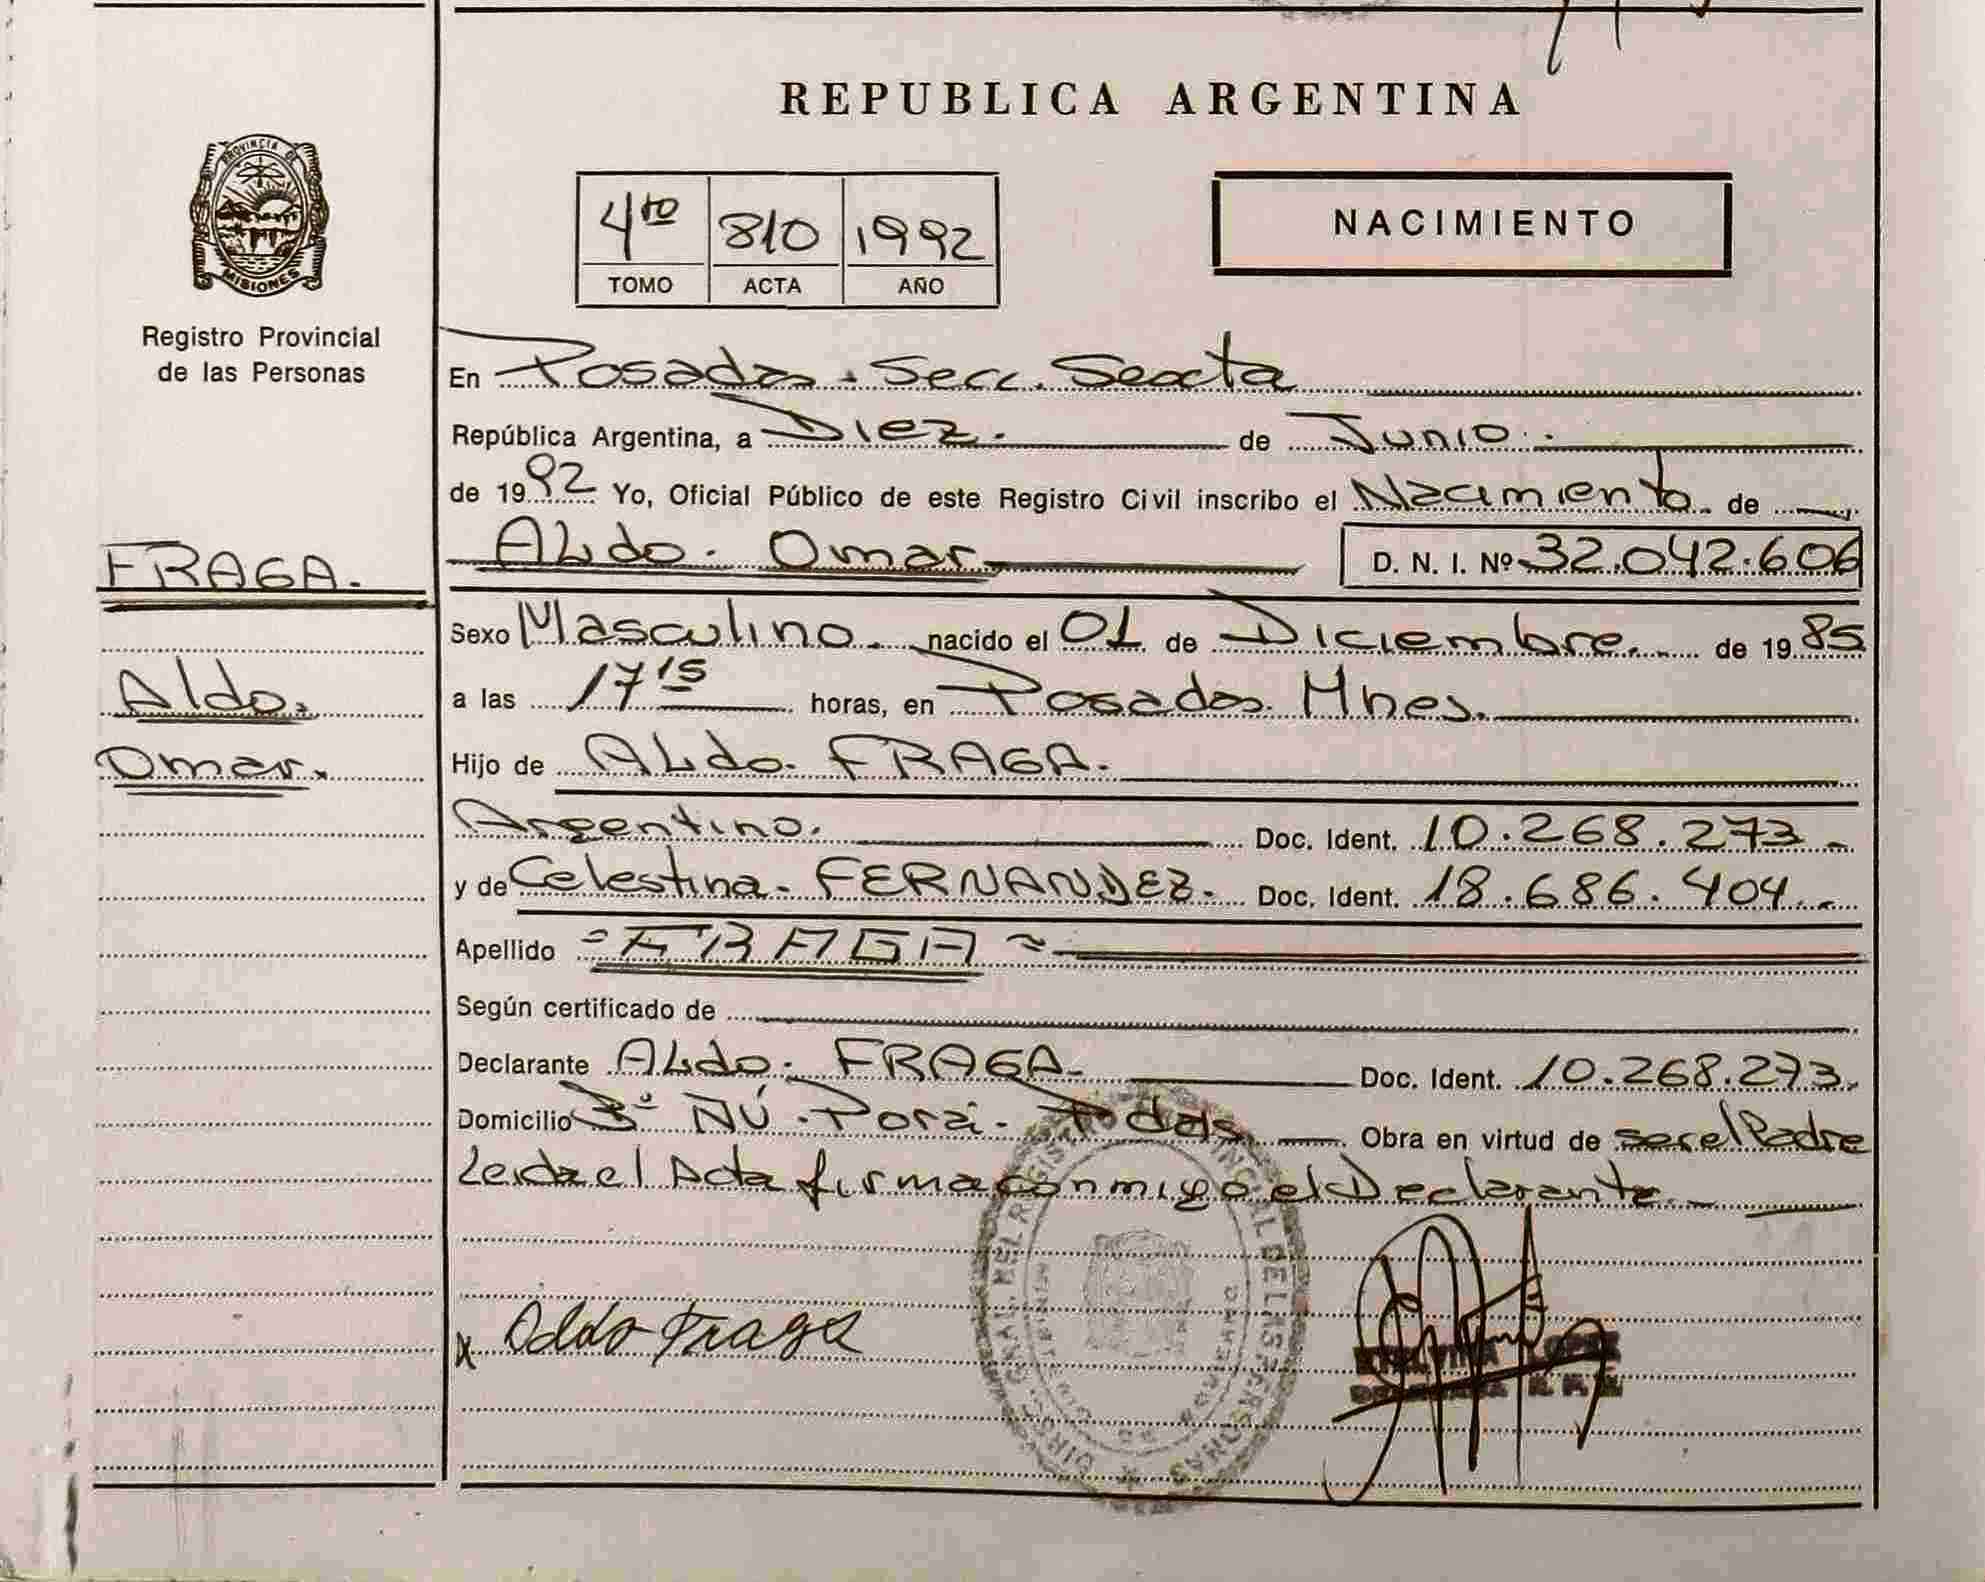 REPUBLICA ARGENTINA
PROVINCIA DE
MISIONES
Registro Provincial
de las Personas
4to 810 1992
TOMO ACTA AÑO
NACIMIENTO
En Posadas. Secc. Sexta
República Argentina, a Diez. de Junio.
de 1992 Yo, Oficial Público de este Registro Civil inscribo el Nacimiento de
FRAGA.
Aldo. Omar D. N. I. Nº 32.042.606
Sexo Masculino. nacido el 01 de Diciembre. de 1985
Aldo.
a las 17 15 horas, en Posadas. Mnes.
Omar.
Hijo de Aldo. FRAGA.
Argentino. Doc. Ident. 10.268.273.-
y de Celestina. FERNANDEZ. Doc. Ident. 18.686.404.-
Apellido =FRAGA=
Según certificado de
Declarante Aldo. FRAGA. Doc. Ident. 10.268.273.
Domicilio Bº ÑÚ. Porá. Pdas. Obra en virtud de ser el Padre
Leida el Acta firma conmigo el Declarante.
x Aldo Fraga
LOPEZ